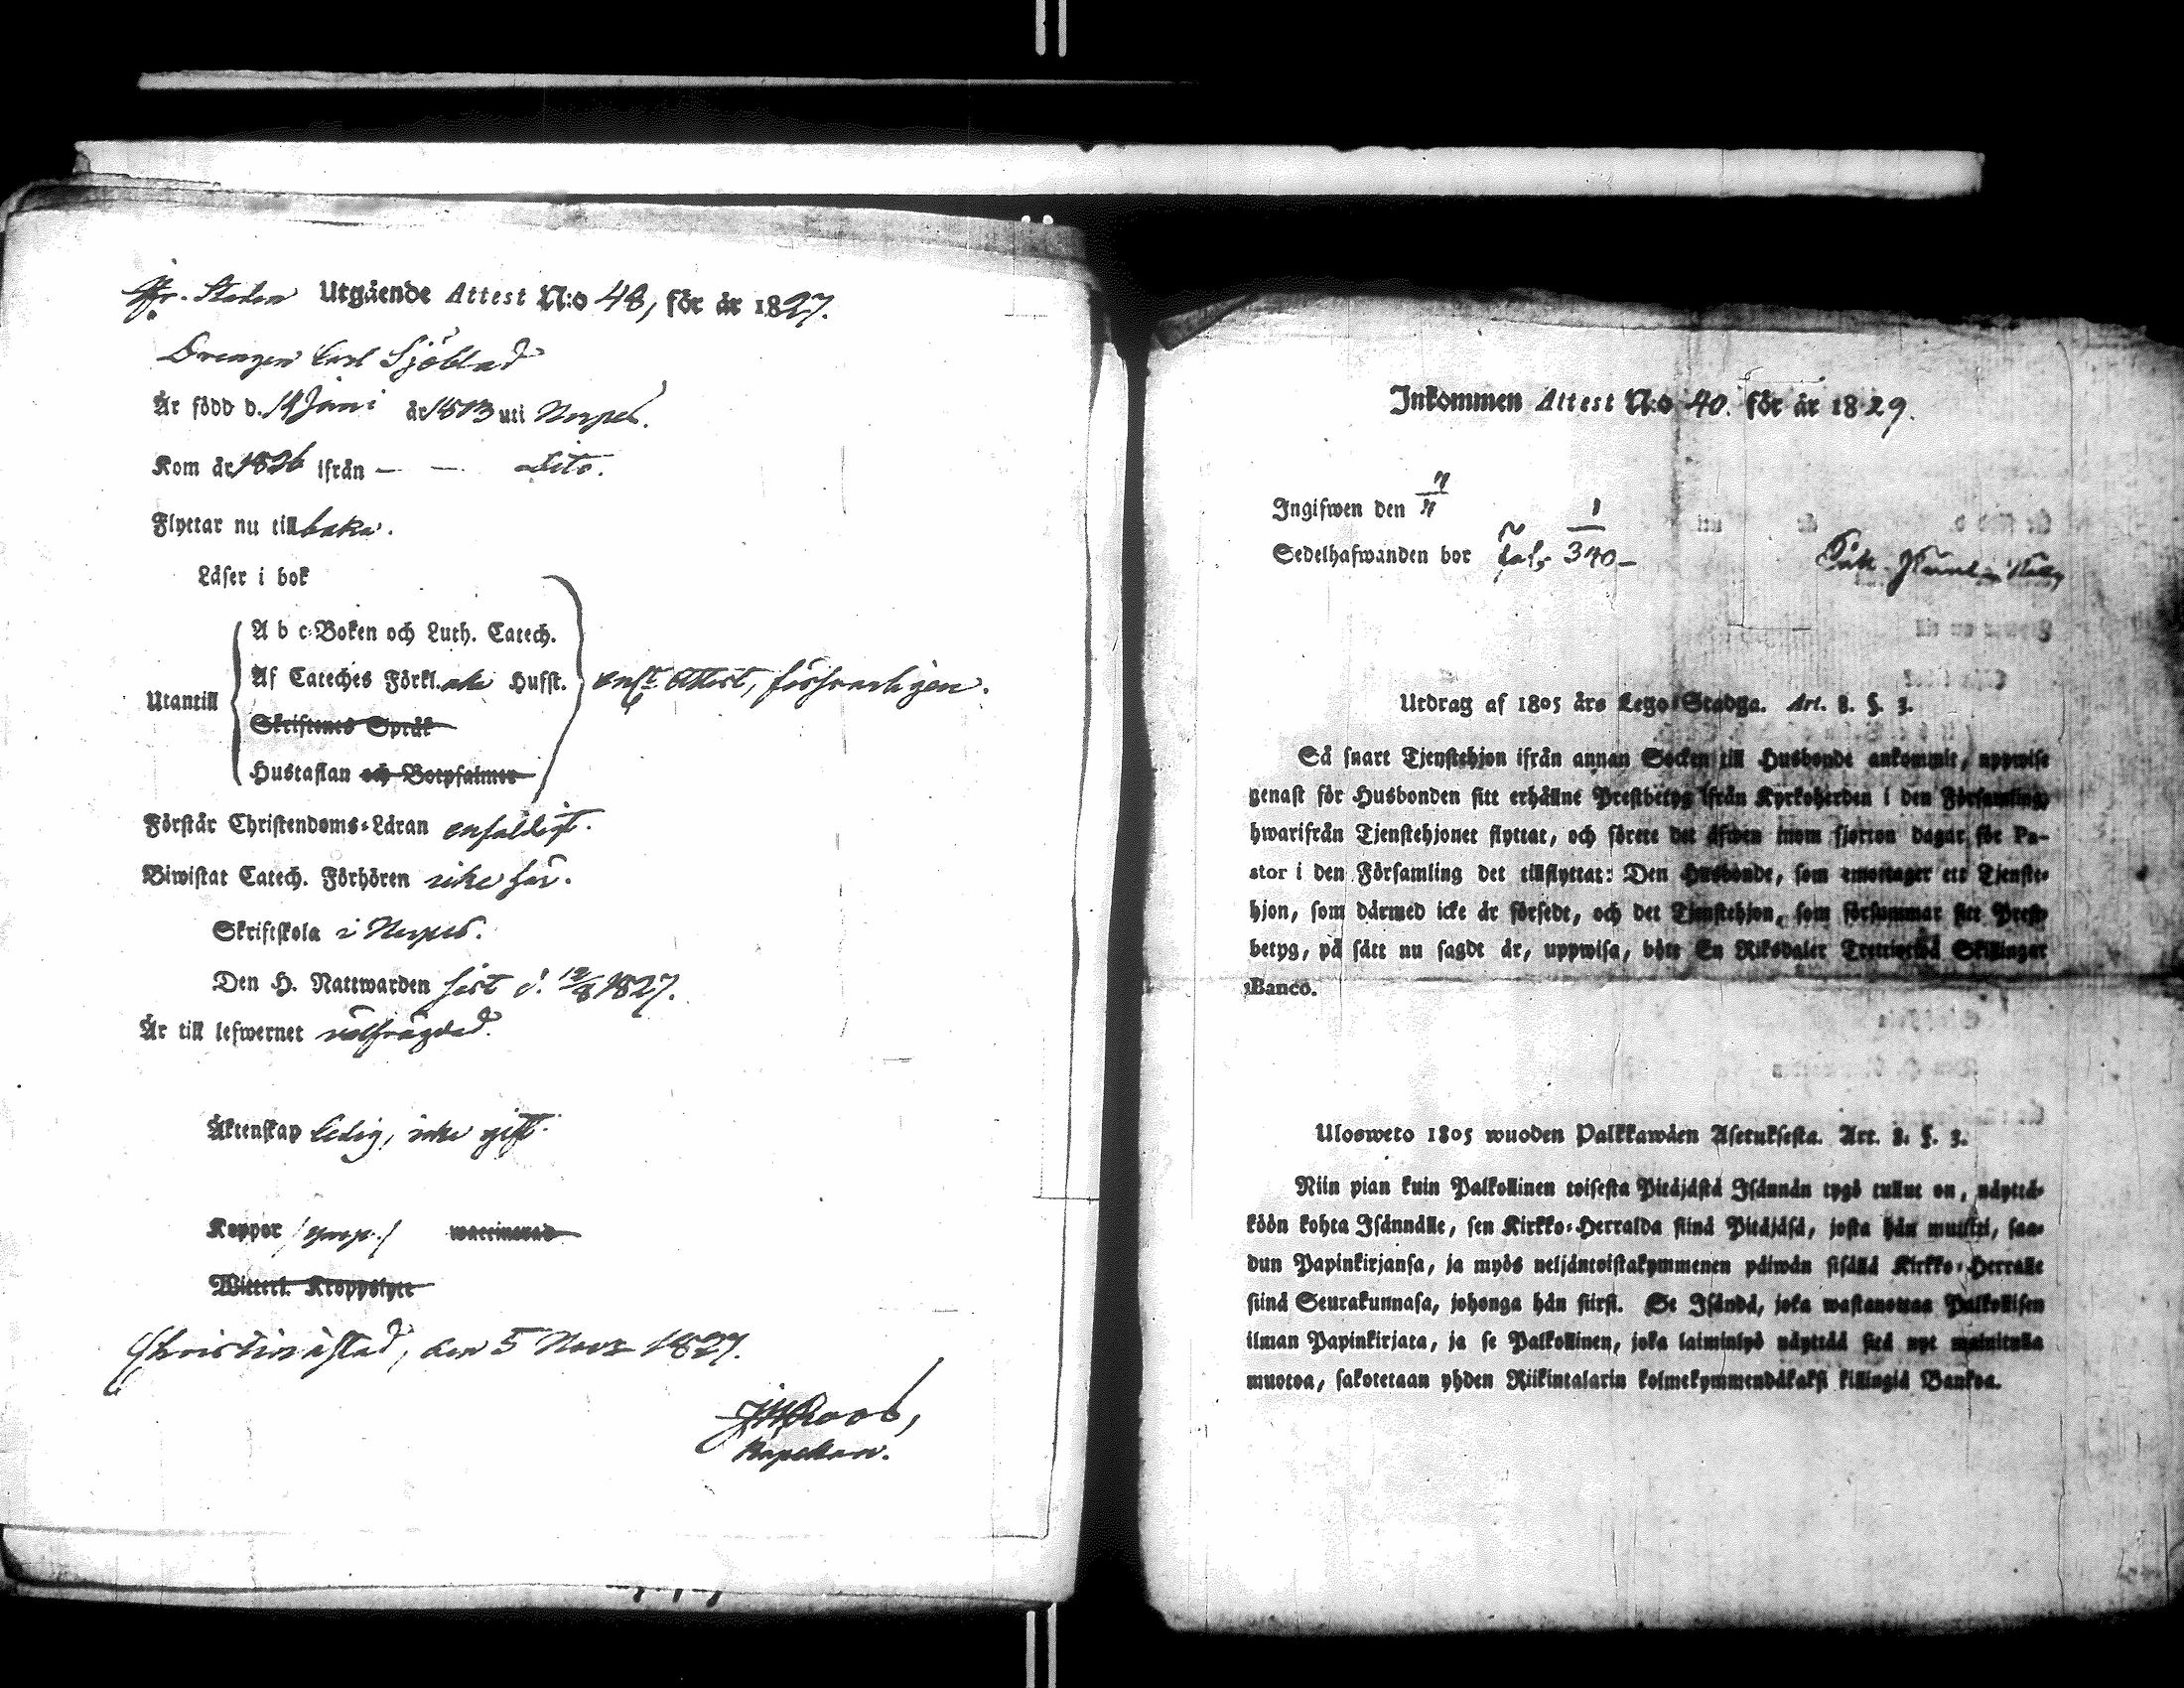 fr. Staden Utgående Attest N:o 48, för år 1827.
Drengen Carl Sjöblad
Är född d. 14 Juni år 1813 uti Nerpes.
Kom år 1826 ifrån — — dito.
Flyttar nu till baka.
Läser i bok
A b c-Boken och Luth. Catech.
Utantill Af Cateches Förkl. Husst. enl. Attest, försvarligen.
Skriftenes Språk
Hustaflan och Botpsalmer
Förstår Christendoms-Läran enfaldigt.
Biwistat Catech. Förhören icke här.
Skriftskola i Nerpes.
Den H. Nattwarden sist d. 12/8 1827.
Är till lefwernet välfrägdad.
Äktenskap ledig, icke gift.
Koppor waccinerad
Witterl. Kroppslyte
Christinæstad, den 5 Nov 1827.
Kapellan.
Inkommen Attest N:o 40. för år 1829.
Ingifwen den
Sedelhafwanden bor 1
340 —
Utdrag af 1805 års Lego-Stadga. Art. 8. §. 3.
Så snart Tjenstehjon ifrån annan Socken till Husbonde ankommit, uppwise
genast för Husbonden sitt erhållne Prestbetyg ifrån Kyrkoherden i den Församling,
hwarifrån Tjenstehjonet flyttat, och förete det äfwen inom fjorton dagar för Pa-
stor i den Församling det tillflyttat: Den Husbonde, som emottager ett Tjenste-
hjon, som därmed icke är försedt, och det Tjenstehjon, som försummar sitt Prest-
betyg, på sätt nu sagdt är, uppwisa, böte En Riksdaler Trettiotwå Skillingar
Banco.
Ulosweto 1805 wuoden Palkkawäen Asetuksesta. Art. 8. §. 3.
Niin pian kuin Palkollinen toisesta Pitäjästä Isännän tygö tullut on, näyttä-
köön kohta Isännälle, sen Kirkko-Herralda siinä Pitäjäsä, josta hän muutti, saa-
dun Papinkirjansa, ja myös neljäntoistakymmenen päiwän sisällä Kirkko-Herralle
siinä Seurakunnasa, johonga hän siirsi. Se Isändä, joka wastanottaa Palkollisen
ilman Papinkirjata, ja se Palkollinen, joka laiminlyö näyttää sitä nyt mainitulla
muotoa, sakotetaan yhden Riikintalarin kolmekymmendäkaksi killingiä Bankoa.